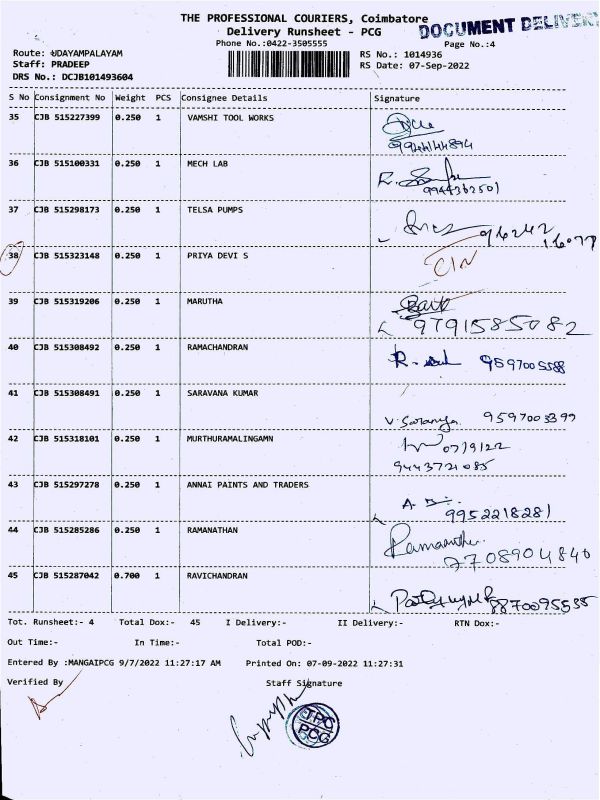 THE PROFESSIONAL COURIERS, Coimbatore
DOCUMENT DELIVERY
Delivery Runsheet - PCG
Phone No.:0422-3505555
Page No.:4
Route: UDAYAMPALAYAM
RS No.: 1014936
Staff: PRADEEP
RS Date: 07-Sep-2022
DRS No.: DCJB101493604
S No Consignment No Weight PCS Consignee Details Signature
35 CJB 515227399 0.250 1 VAMSHI TOOL WORKS
36 CJB 515100331 0.250 1 MECH LAB
9944362501
37 CJB 515298173 0.250 1 TELSA PUMPS
96242
16077
38 CJB 515323148 0.250 1 PRIYA DEVI S
CIN
39 CJB 515319206 0.250 1 MARUTHA
9791585082
40 CJB 515308492 0.250 1 RAMACHANDRAN
9597005588
41 CJB 515308491 0.250 1 SARAVANA KUMAR
V Saranya 9597003399
42 CJB 515318101 0.250 1 MURTHURAMALINGAMN
07/9/22
9443721085
43 CJB 515297278 0.250 1 ANNAI PAINTS AND TRADERS
9952218281
44 CJB 515285286 0.250 1 RAMANATHAN
7708904840
45 CJB 515287042 0.700 1 RAVICHANDRAN
8870095535
Tot. Runsheet:- 4 Total Dox:- 45 I Delivery:- II Delivery:- RTN Dox:-
Out Time:- In Time:- Total POD:-
Entered By :MANGAIPCG 9/7/2022 11:27:17 AM Printed On: 07-09-2022 11:27:31
Verified By Staff Signature
TPC
PCG